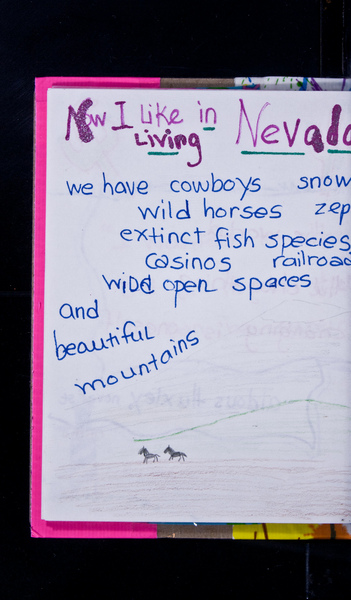 Now I Like in
Living Nevada
we have cowboys snow
wild horses zep
extinct fish species
casinos railroad
wide open spaces
and
beautiful
mountains